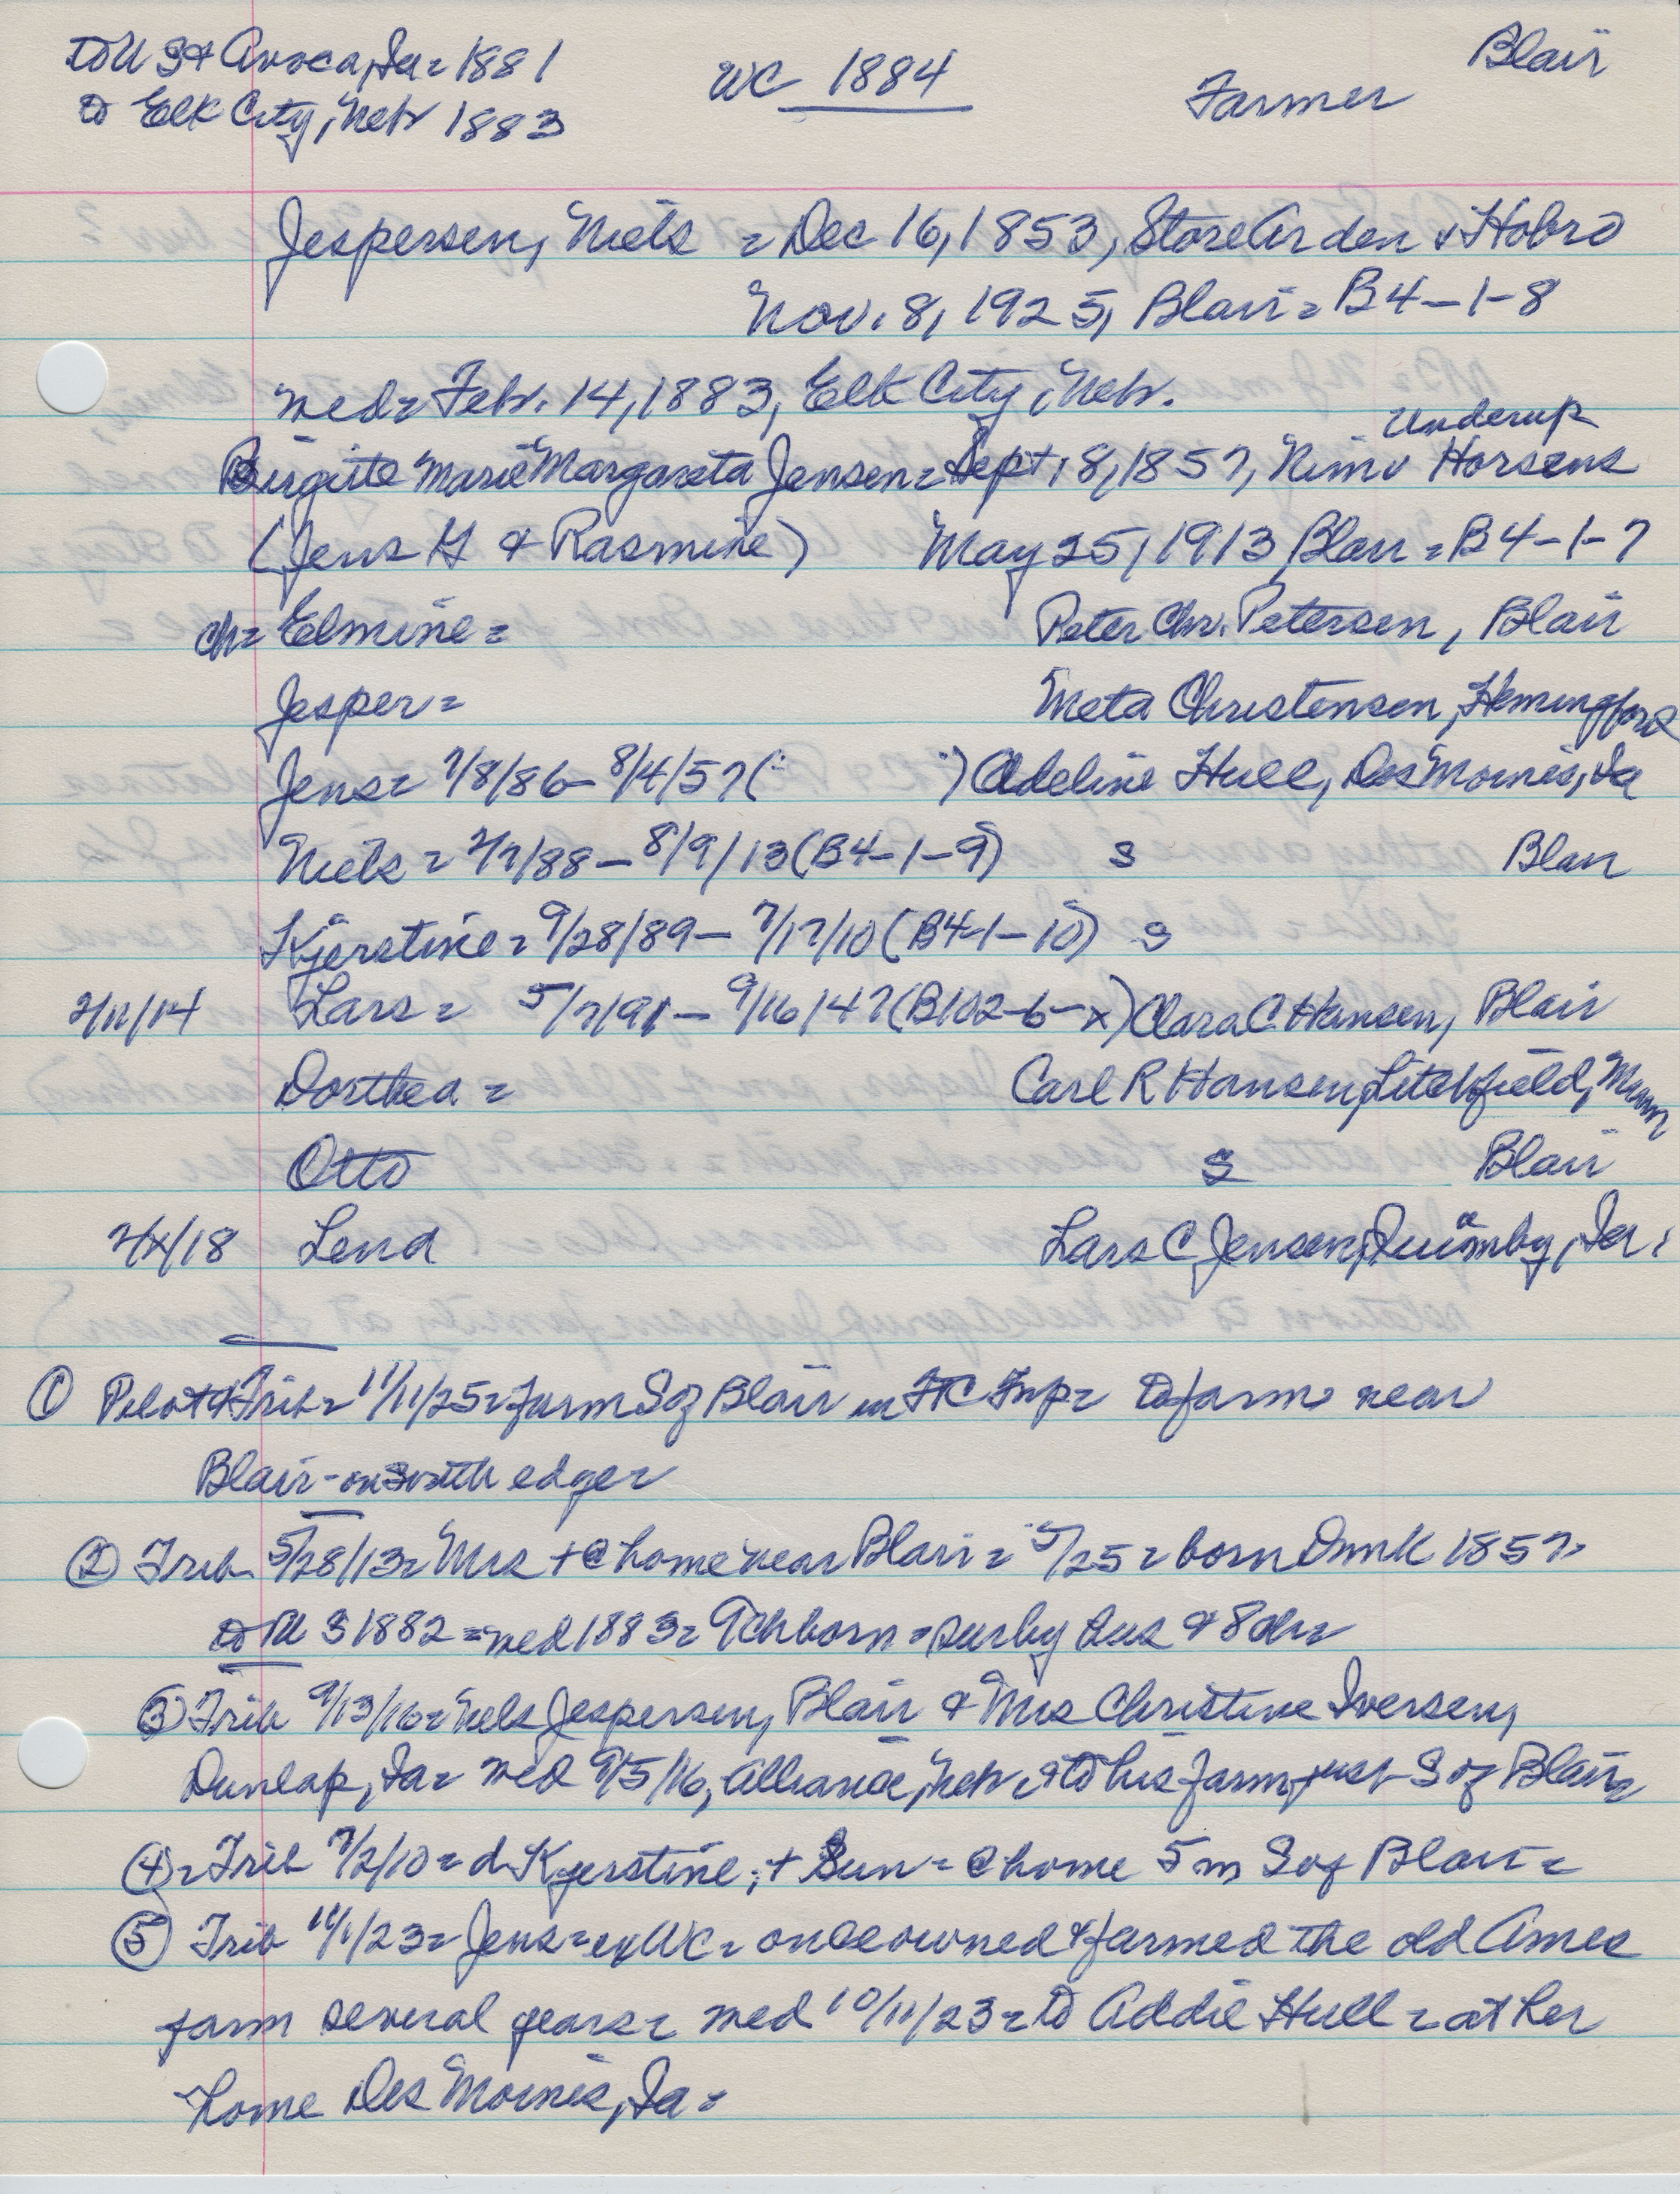 to US & Avoca, Ia = 1881
to Elk City, Nebr 1883
WC 1884
Blair
Farmer
Jespersen, Niels = Dec 16, 1853, Store Arden v Hobro
Nov. 8, 1925, Blair = B4-1-8
wed = Febr. 14, 1883, Elk City, Nebr.
Underup
Birgitte Marie Margareta Jensen = Sept. 8, 1857, Nim v Horsens
(Jens G & Rasmine) May 25, 1913, Blair = B4-1-7
ch = Elmine = Peter Chr. Petersen, Blair
Jesper = Meta Christensen, Hemingford
Jens = 7/8/86 - 8/4/57 (" ") Adeline Hull, Des Moines, Ia
Niels = 2/7/88 - 8/9/13 (B4-1-9) s Blair
Kjerstine = 9/28/89 - 7/17/10 (B4-1-10) s
2/11/14 Lars = 5/7/91 - 9/16/47 (B102-6-x) Clara C. Hansen, Blair
Dorthea = Carl R Hansen, Litchfield, Minn
Otto s Blair
2/x/18 Lena Lars C Jensen, Quimby, Ia.
① Pilot & Trib = 11/11/25 = farm S of Blair in FC Tnp = to farm near
Blair - on south edge =
② Trib 5/28/13 = Mrs + @ home near Blair = 5/25 = born Dnmk 1857 =
to U S 1882 = wed 1883 = 9 ch born = surby hus & 8 ch =
③ Trib 9/13/16 = Nels Jespersen, Blair & Mrs Christine Iversen,
Dunlap, Ia = wed 9/5/16, Alliance, Nebr & to his farm just S of Blair =
④ = Trib 7/2/10 = d Kjerstine, + Sun = @ home 5 m S of Blair =
⑤ Trib 11/1/23 = Jens = ex WC = once owned & farmed the old Ames
farm several years = wed 10/11/23 = to Addie Hull = at her
home Des Moines, Ia =